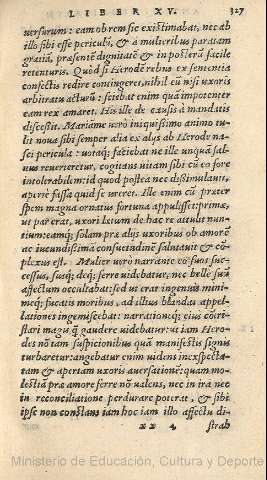 LIBER XV. 327
uersurum: eam ob rem sic existimabat, nec ab
illo sibi esse periculū, & à mulieribus paratam
gratiā, præsentē dignitatē & in posterū facilè
retenturis. Quòd si Herode rebus ex sententia
confectis redire contingeret, nihil cū nisi uxoris
arbitratu acturū: scebat enim quā impotenter
eam rex amaret. His ille de causis à mandatis
discessit. Mariāme uerò iniquissimo animo tu-
lit noua sibi semper alia ex alijs ab Herode na-
sci pericula: uotaq; faciebat ne ille unquā sal-
uus reuerteretur, cogitans uitam sibi cū eo fore
intolerabilem: id quod postea nec dissimulauit,
apertè fassa quid se ureret. Ille enim cū præter
spem magna ornatus fortuna appulisset: primū,
ut par erat, uxori lætum de hac re attulit nun-
tium: eamq; solam præ alijs uxoribus ob amorē
ac iucundissima consuetudinē salutauit & cō-
plexus est. Mulier uerò narrante eo suos suc-
cessus, iusq; deq; ferre uidebatur: nec belle suū
affectum occultabat: sed ut erat ingenuis mini-
meq; fucatis moribus, ad illius blandas appel-
lationes ingemiscebat: narrationiq; eius cōtri-
stari magis q̄ gaudere uidebatur: ut iam Hero-
des nō tam suspicionibus quā manifestis signis
turbaretur: angebatur enim uidens inexspecta-
tam & apertam uxoris auersationē: quam mo-
lestiā præ amore ferre nō ualens, nec in ira nec
in reconciliatione perdurare poterat, & sibi
ipse non constans iam hoc iam illo affectu di-
xx 4 strah
Ministerio de Educación, Cultura y Deporte